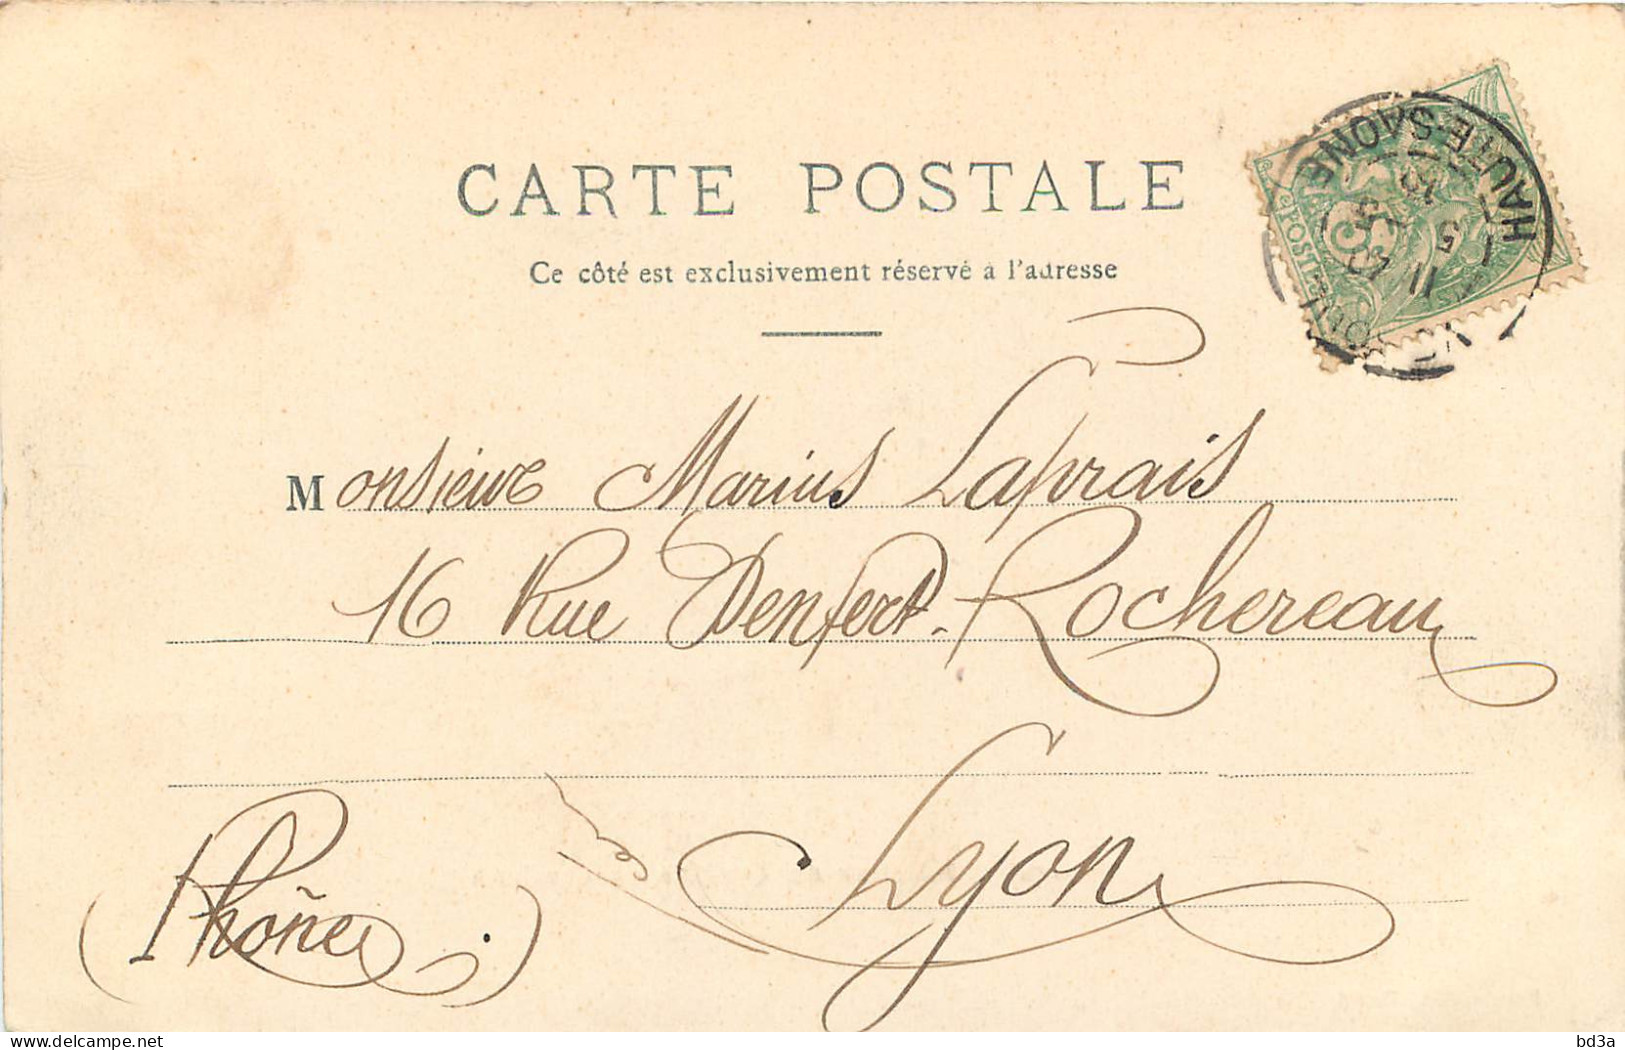 CARTE POSTALE
Ce côté est exclusivement réservé à l'adresse
HAUTE-SAONE
POSTES
Monsieur Marius Laprais
16 Rue Denfert-Rochereau
Lyon
(Rhône)
delcampe.net
bd3a